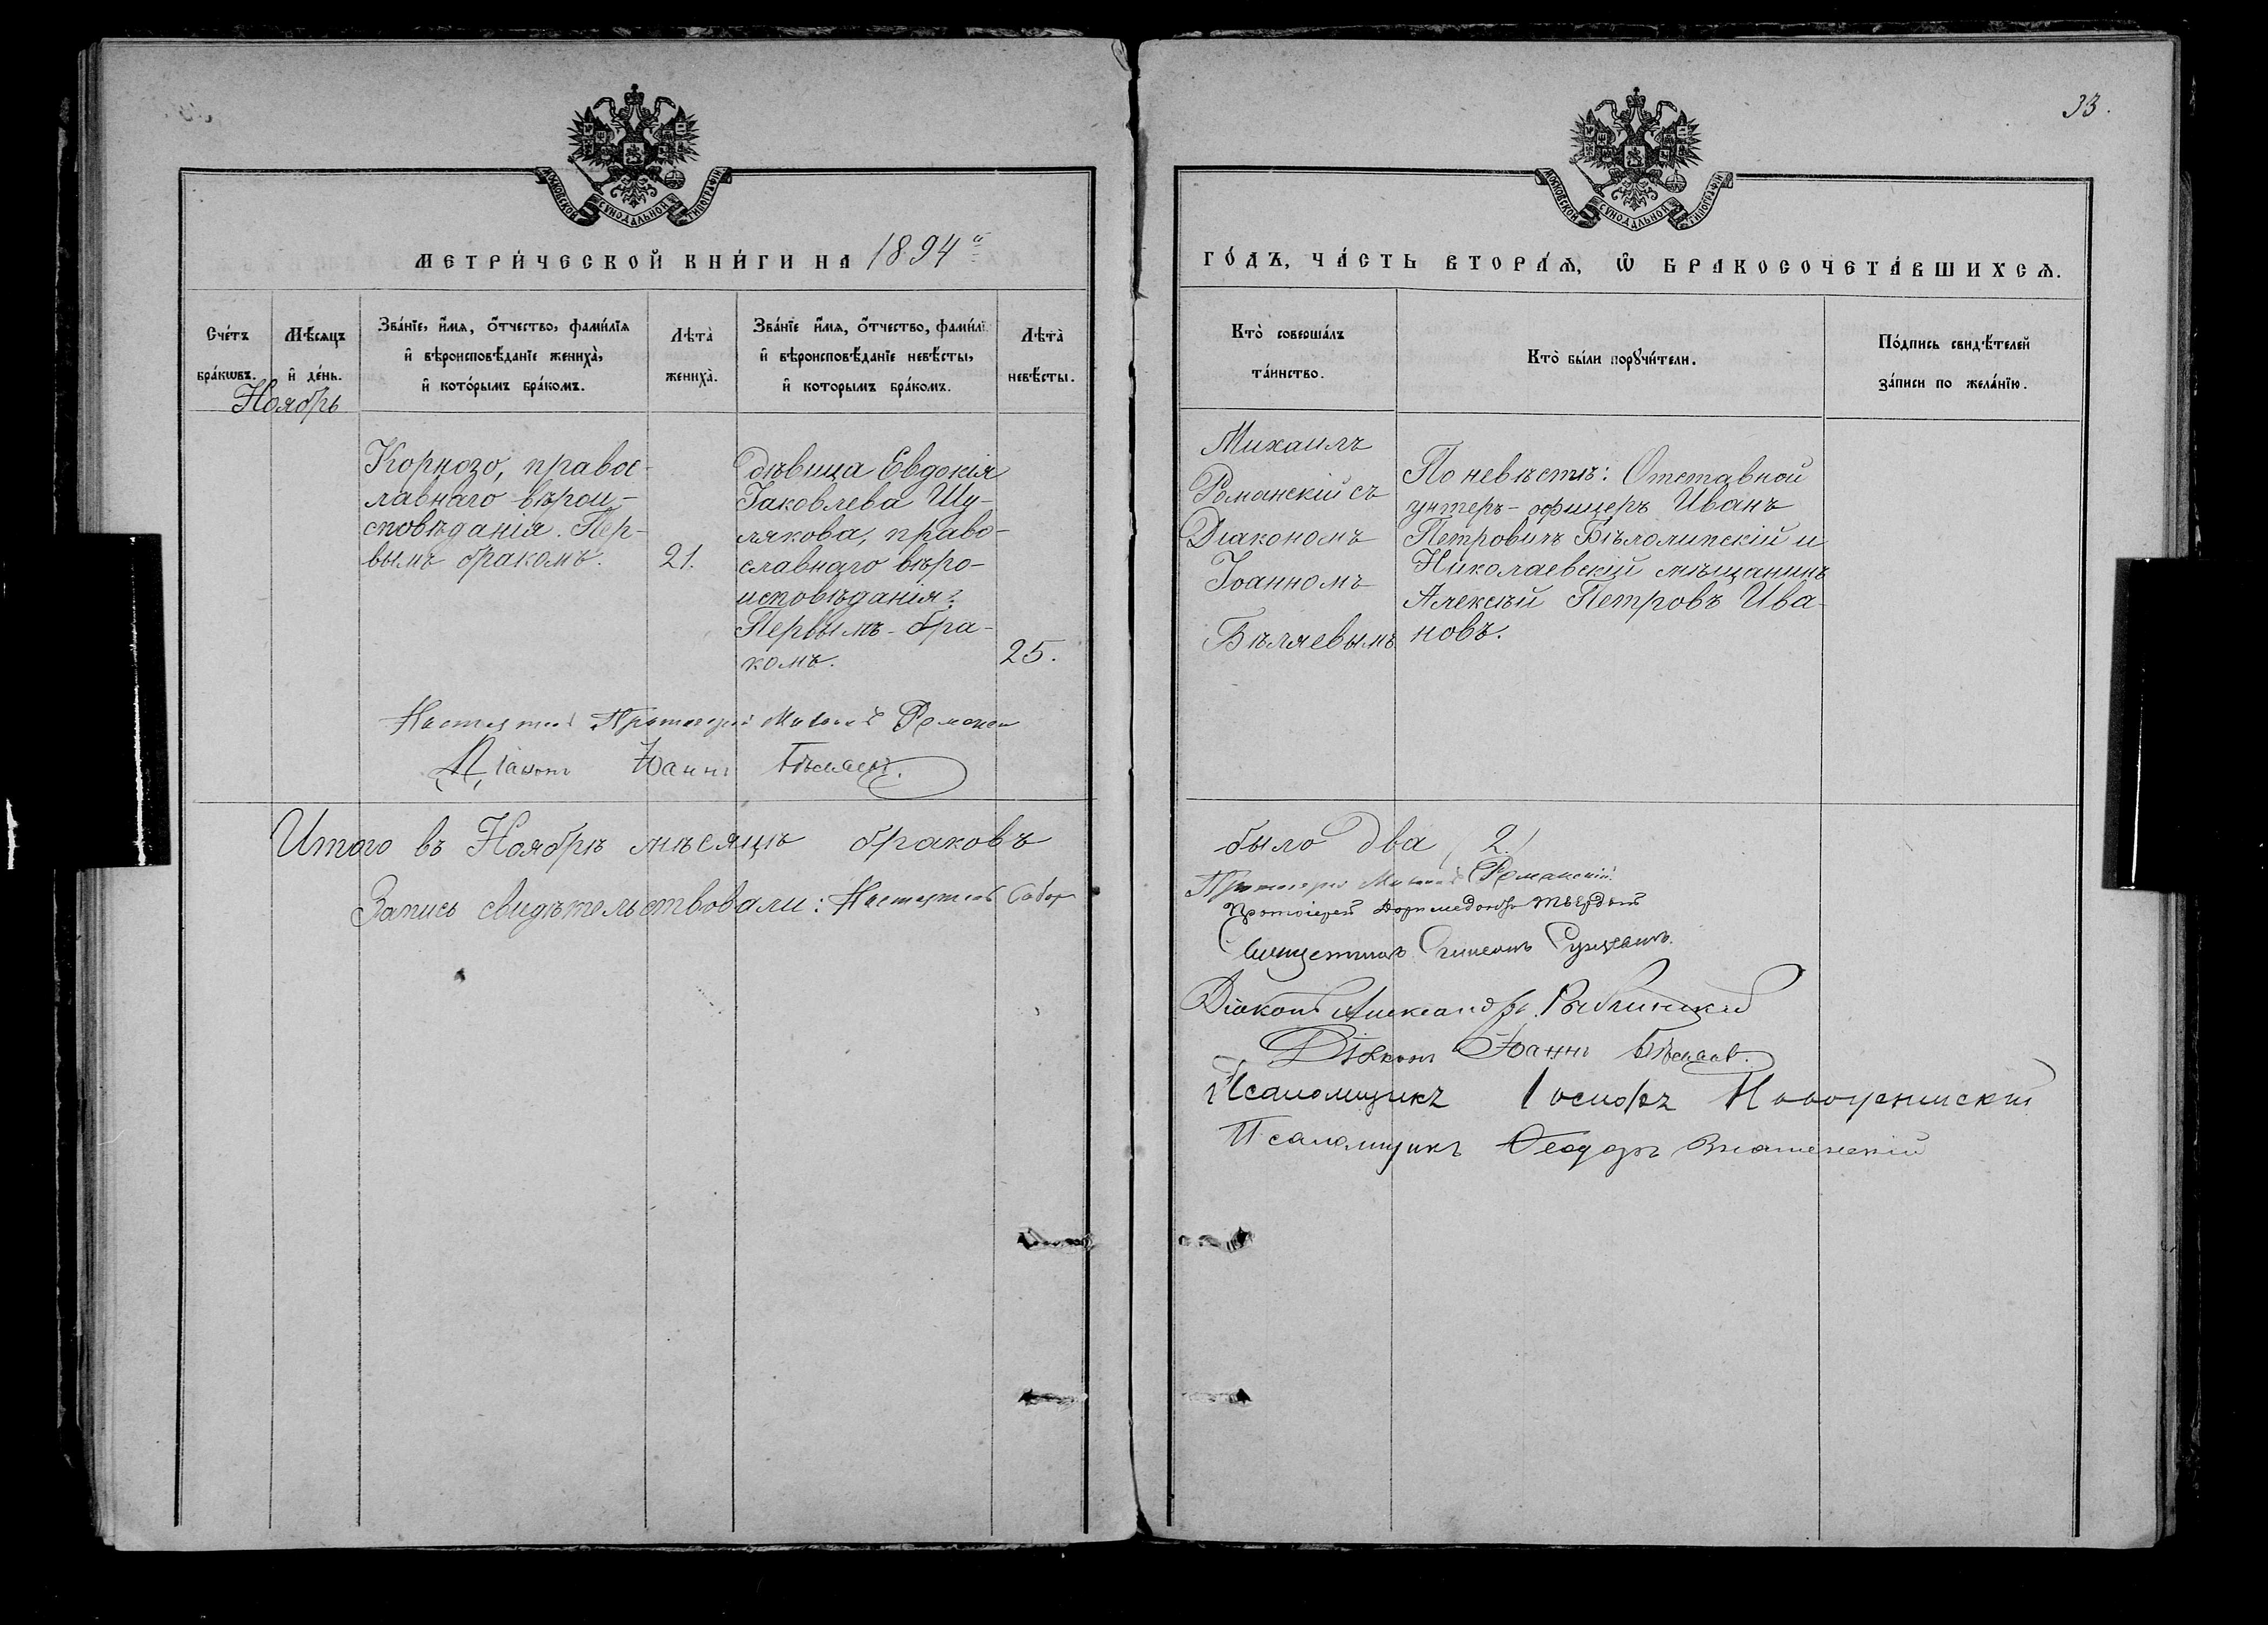 33.
МОСКОВСКОЙ СѴНОДАЛЬНОЙ ТИПОГРАФІИ
МОСКОВСКОЙ СѴНОДАЛЬНОЙ ТИПОГРАФІИ
МЕТРИ́ЧЕСКОЙ КНИ́ГИ НА 1894й
ГО́ДЪ, ЧА́СТЬ ВТОРА́Ѧ, Ѽ БРАКОСОЧЕТА́ВШИХСѦ.
Сче́тъ бра́кѡвъ.
Мѣ́сяцъ и҆ де́нь.
Зва́нїе, и҆́мя, ѻ҆́тчество, фамилїя
и҆ вѣроисповѣ́данїе жениха̀,
и҆ кото́рымъ бра́комъ.
Лѣта̀ жениха̀.
Зва́нїе и҆́мя, ѻ҆́тчество, фамилї
и҆ вѣроисповѣ́данїе невѣ́сты,
и҆ которымъ бра́комъ.
Лѣта̀ невѣ́сты.
Кто̀ соверша́лъ
та́инство.
Кто̀ бы́ли порꙋчи́тели.
По́дпись свидѣ́телей
за́писи по жела́нїю.
Ноябрь
Корнозо, правос-
лавнаго вѣрои-
сповѣданія. Пер-
вымъ бракомъ.
21.
дѣвица Евдокія
Іаковлева Шу-
лякова, право-
славнаго вѣро-
исповѣданія.
Первымъ бра-
комъ.
25.
Михаилъ
Романскій съ
Діакономъ
Іоанномъ
Бѣляевымъ
По невѣстѣ: Отставной
унтеръ-офицеръ Иванъ
Петровичъ Бѣлолипскій и
Николаевскій мѣщанинъ
Алексѣй Петровъ Ива-
новъ.
Настоятель Протоіерей Михаилъ Романскій
Діаконъ Іоаннъ Бѣляевъ.
Итого въ Ноябрѣ мѣсяцѣ браковъ было два (2.)
Запись свидѣтельствовали: Настоятель Собор
Протоіерей Михаилъ Романскій
Протоіерей Твердый
Священникъ Симеонъ
Діаконъ Александръ
Діаконъ Іоаннъ Бѣляевъ.
Псаломщикъ Іосифъ
Псаломщикъ Ѳеодоръ